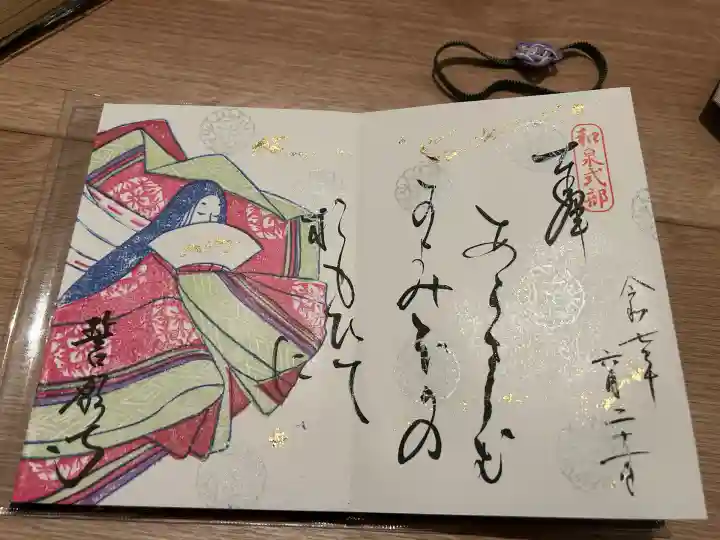 和泉式部
奉拝
令和七年
六月二十一日
あらさらむ
このよのほかの
おもひて
に
誓願寺